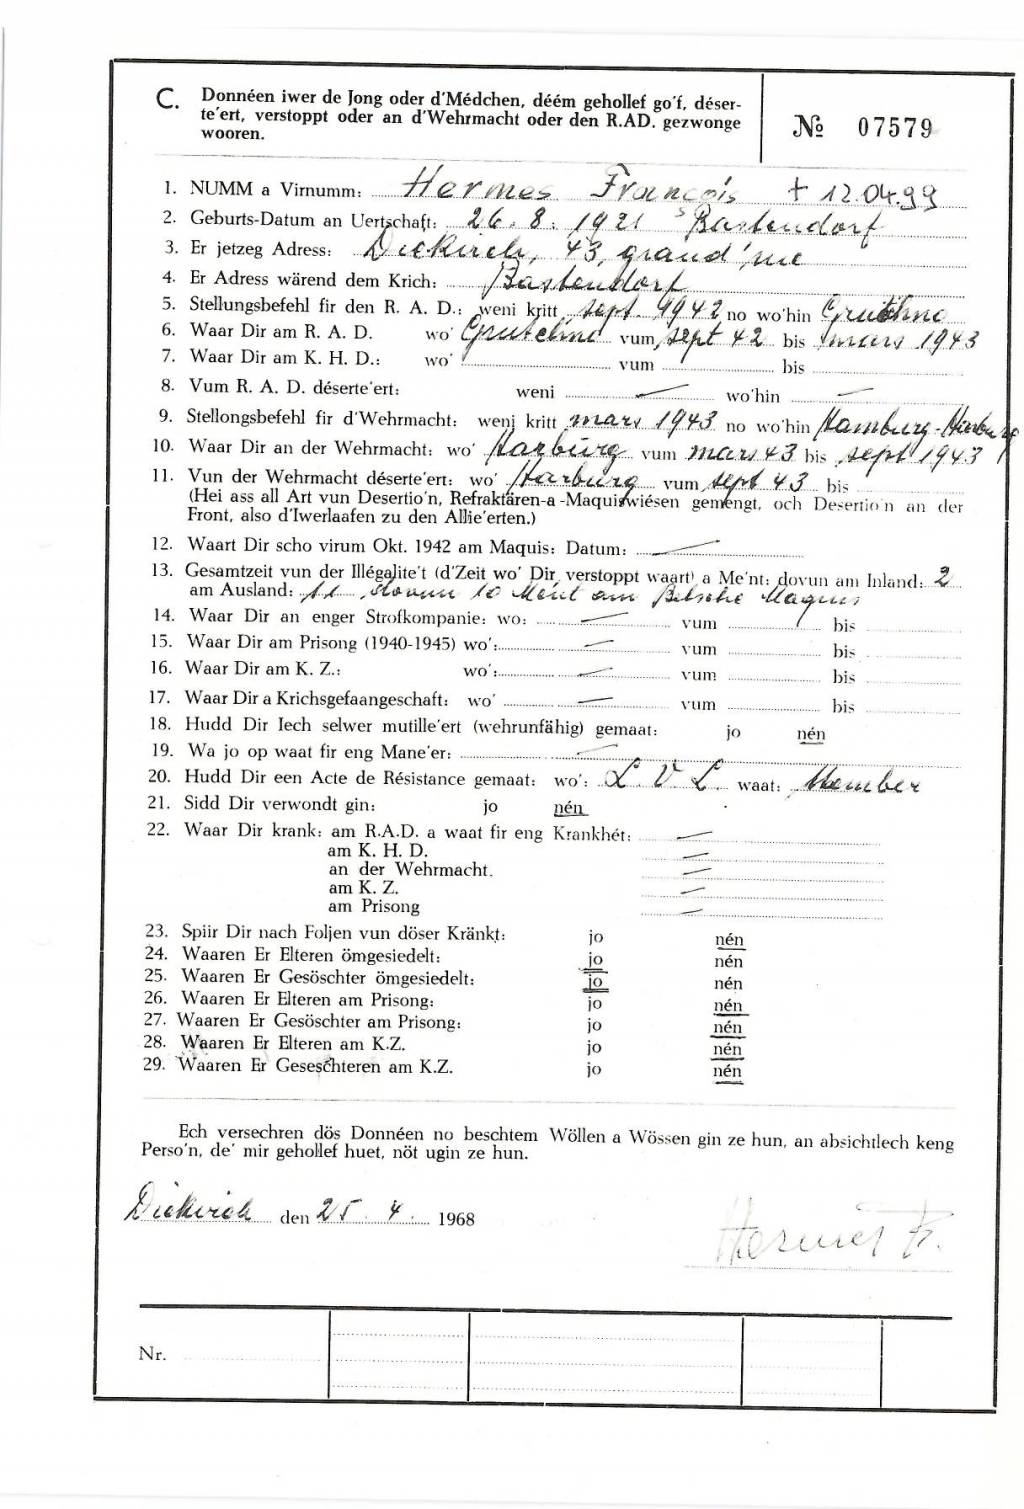 C. Donnéen iwer de Jong oder d'Médchen, déém gehollef go'f, déser-
te'ert, verstoppt oder an d'Wehrmacht oder den R.AD. gezwonge
wooren.
№ 07579
1. NUMM a Virnumm: Hermes François † 12.04.99
2. Geburts-Datum an Uertschaft: 26.8.1921 Bastendorf
3. Er jetzeg Adress: Diekirch, 43, grand'rue
4. Er Adress wärend dem Krich: Bastendorf
5. Stellungsbefehl fir den R. A. D.: weni kritt sept. 1942 no wo'hin
6. Waar Dir am R. A. D. wo' vum sept 42 bis mars 1943
7. Waar Dir am K. H. D.: wo' vum bis
8. Vum R. A. D. déserte'ert: weni — wo'hin —
9. Stellongsbefehl fir d'Wehrmacht: weni kritt mars 1943 no wo'hin Hamburg-
10. Waar Dir an der Wehrmacht: wo' Harburg vum mars 43 bis sept 1943
11. Vun der Wehrmacht déserte'ert: wo' Harburg vum sept 43 bis
(Hei ass all Art vun Desertio'n, Refraktären-a -Maquiswiésen gemengt, och Desertio'n an der
Front, also d'Iwerlaafen zu den Allie'erten.)
12. Waart Dir scho virum Okt. 1942 am Maquis: Datum: —
13. Gesamtzeit vun der Illégalite't (d'Zeit wo' Dir verstoppt waart) a Me'nt: dovun am Inland: 2
am Ausland: 11, dovun 10 Ment am Belsche Maquis
14. Waar Dir an enger Strofkompanie: wo: — vum bis
15. Waar Dir am Prisong (1940-1945) wo': — vum bis
16. Waar Dir am K. Z.: wo': — vum bis
17. Waar Dir a Krichsgefaangeschaft: wo' — vum bis
18. Hudd Dir Iech selwer mutille'ert (wehrunfähig) gemaat: jo nén
19. Wa jo op waat fir eng Mane'er: —
20. Hudd Dir een Acte de Résistance gemaat: wo': L. V L. waat: Member
21. Sidd Dir verwondt gin: jo nén
22. Waar Dir krank: am R.A.D. a waat fir eng Krankhét: —
am K. H. D. —
an der Wehrmacht. —
am K. Z. —
am Prisong —
23. Spiir Dir nach Foljen vun döser Kränkt: jo nén
24. Waaren Er Elteren ömgesiedelt: jo nén
25. Waaren Er Gesöschter ömgesiedelt: jo nén
26. Waaren Er Elteren am Prisong: jo nén
27. Waaren Er Gesöschter am Prisong: jo nén
28. Waaren Er Elteren am K.Z. jo nén
29. Waaren Er Geseschteren am K.Z. jo nén
Ech versechren dös Donnéen no beschtem Wöllen a Wössen gin ze hun, an absichtlech keng
Perso'n, de' mir gehollef huet, nöt ugin ze hun.
Diekirch den 25. 4. 1968
Hermes F.
Nr.